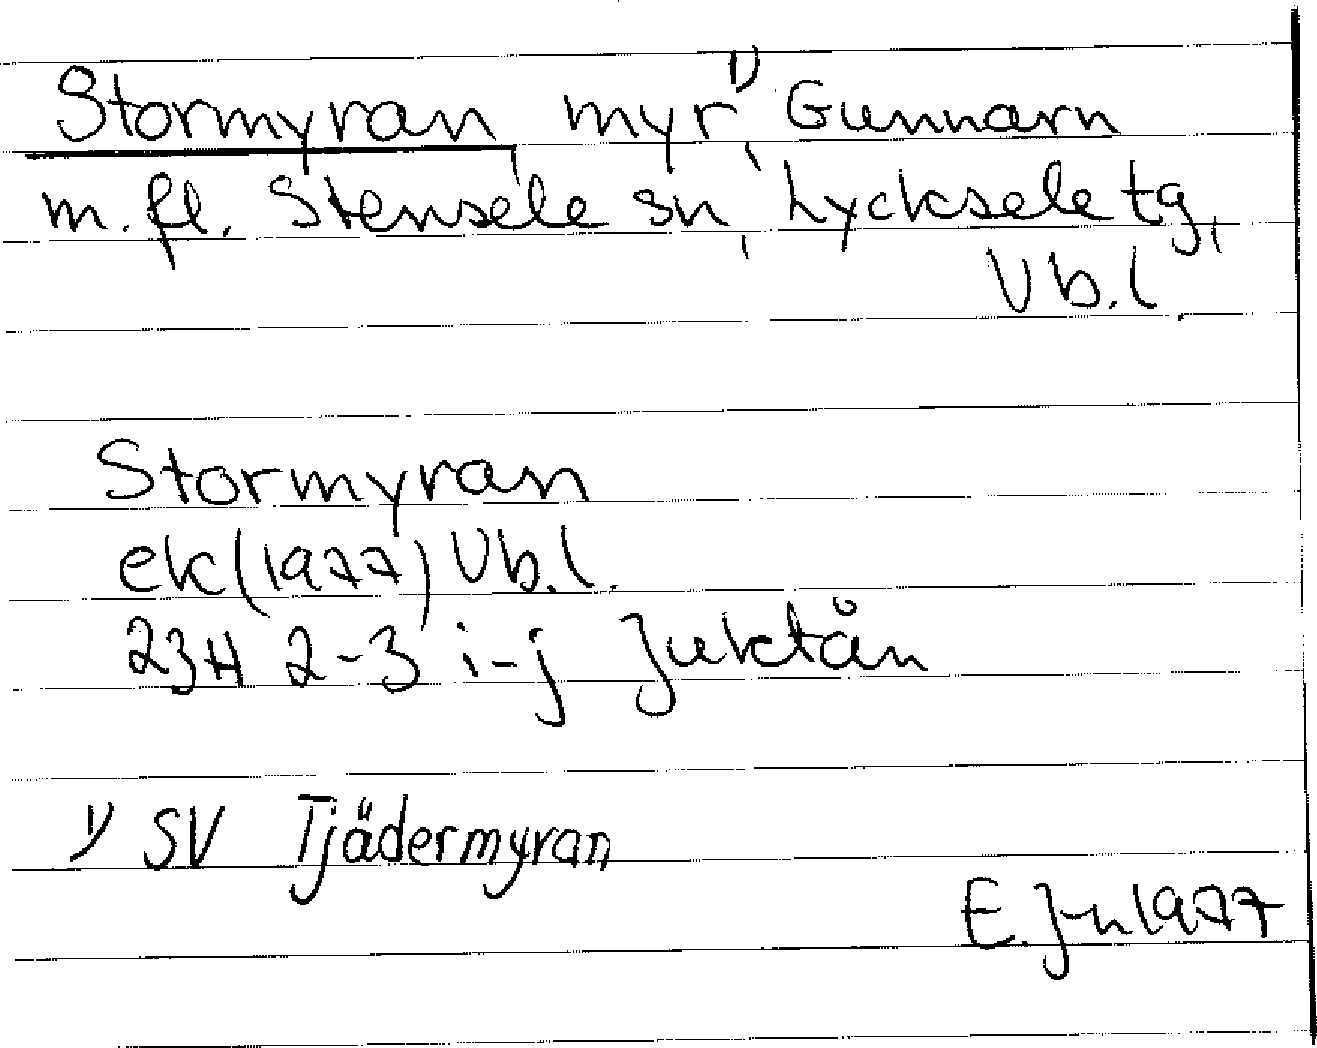 Stormyran, myr¹⁾, Gunnarn
m. fl. Stensele sn, Lycksele tg,
Vb. l.
Stormyran
ek (1977) Vb. l.
23H 2-3 i-j Juktån
1) SV Tjädermyran
E. J-n 1977